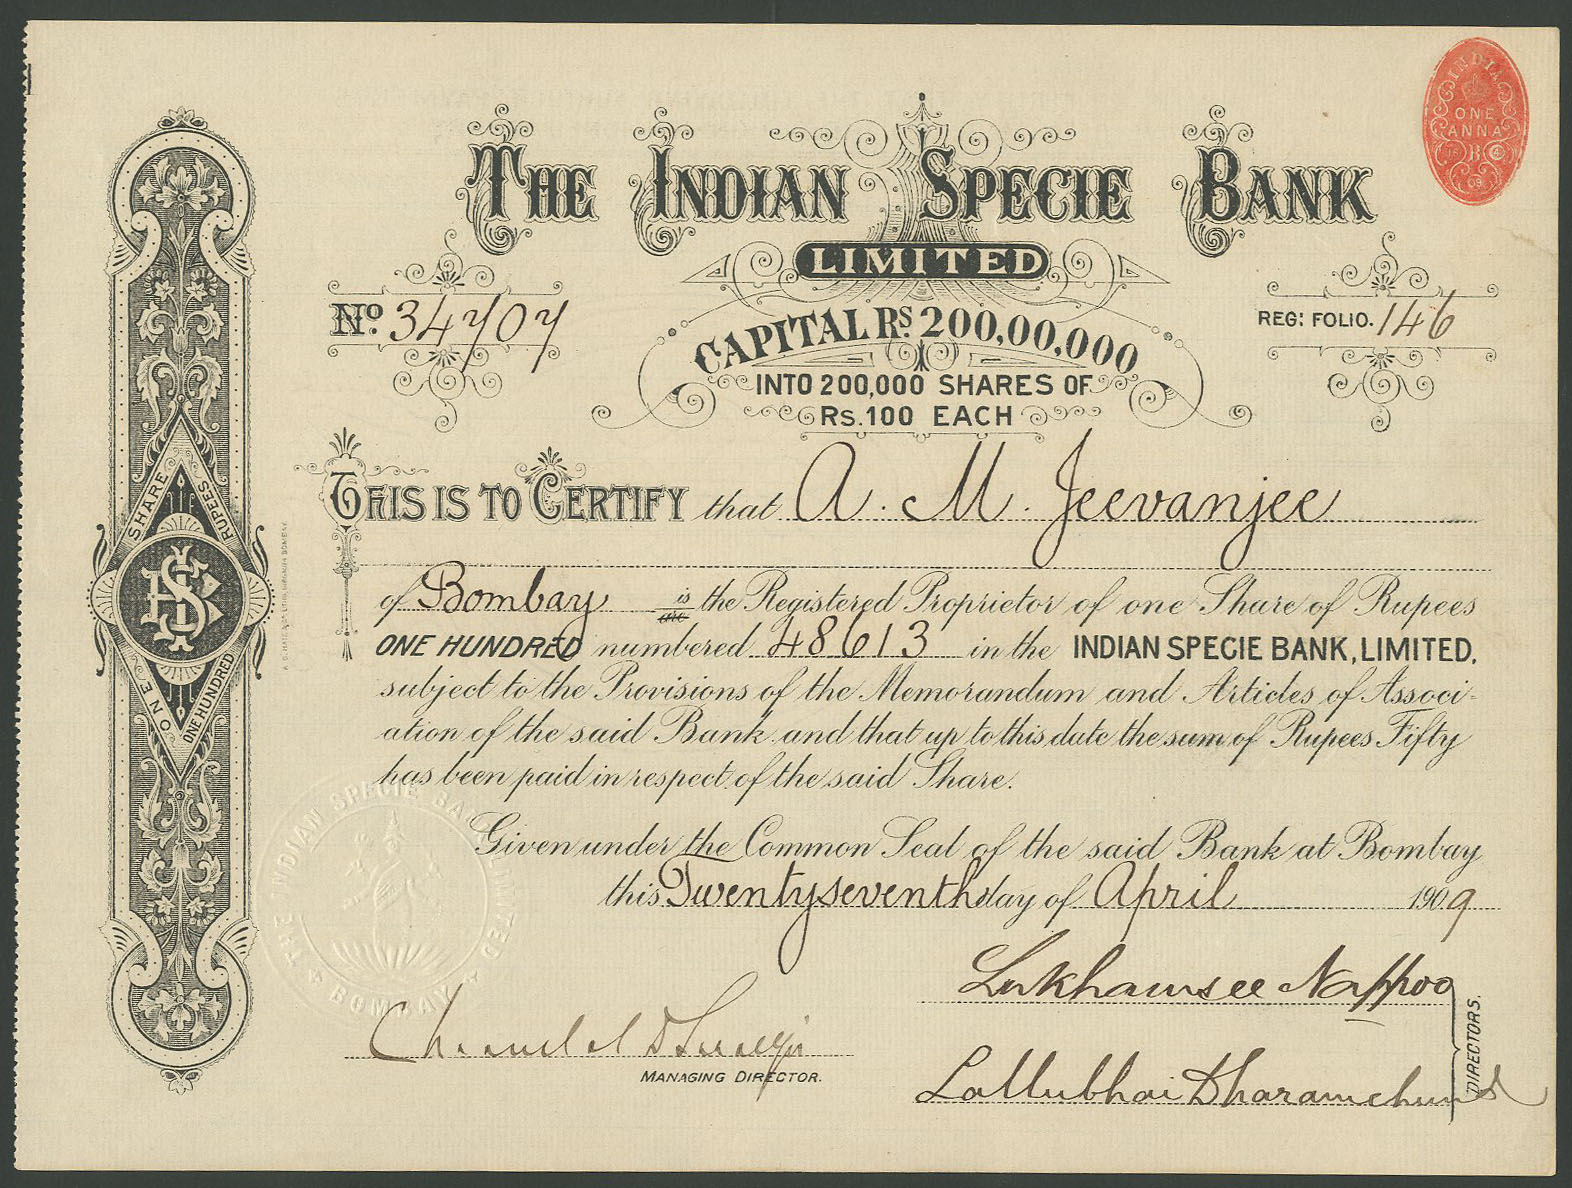 INDIA
ONE
ANNA
THE INDIAN SPECIE BANK
LIMITED
No. 34707
REG: FOLIO. 146
CAPITAL Rs. 200,00,000
INTO 200,000 SHARES OF
Rs. 100 EACH
THIS IS TO CERTIFY that A. M. Jeevanjee
of Bombay is are the Registered Proprietor of one Share of Rupees
ONE HUNDRED numbered 48613 in the INDIAN SPECIE BANK, LIMITED.
subject to the Provisions of the Memorandum and Articles of Associ-
ation of the said Bank and that up to this date the sum of Rupees Fifty
has been paid in respect of the said Share.
Given under the Common Seal of the said Bank at Bombay
this Twentyseventh day of April 1909
Lukhamsee Nappoo
Lallubhai Dharamchund
DIRECTORS.
MANAGING DIRECTOR.
SHARE
RUPEES
ONE
ONE HUNDRED
THE INDIAN SPECIE BANK LIMITED
BOMBAY